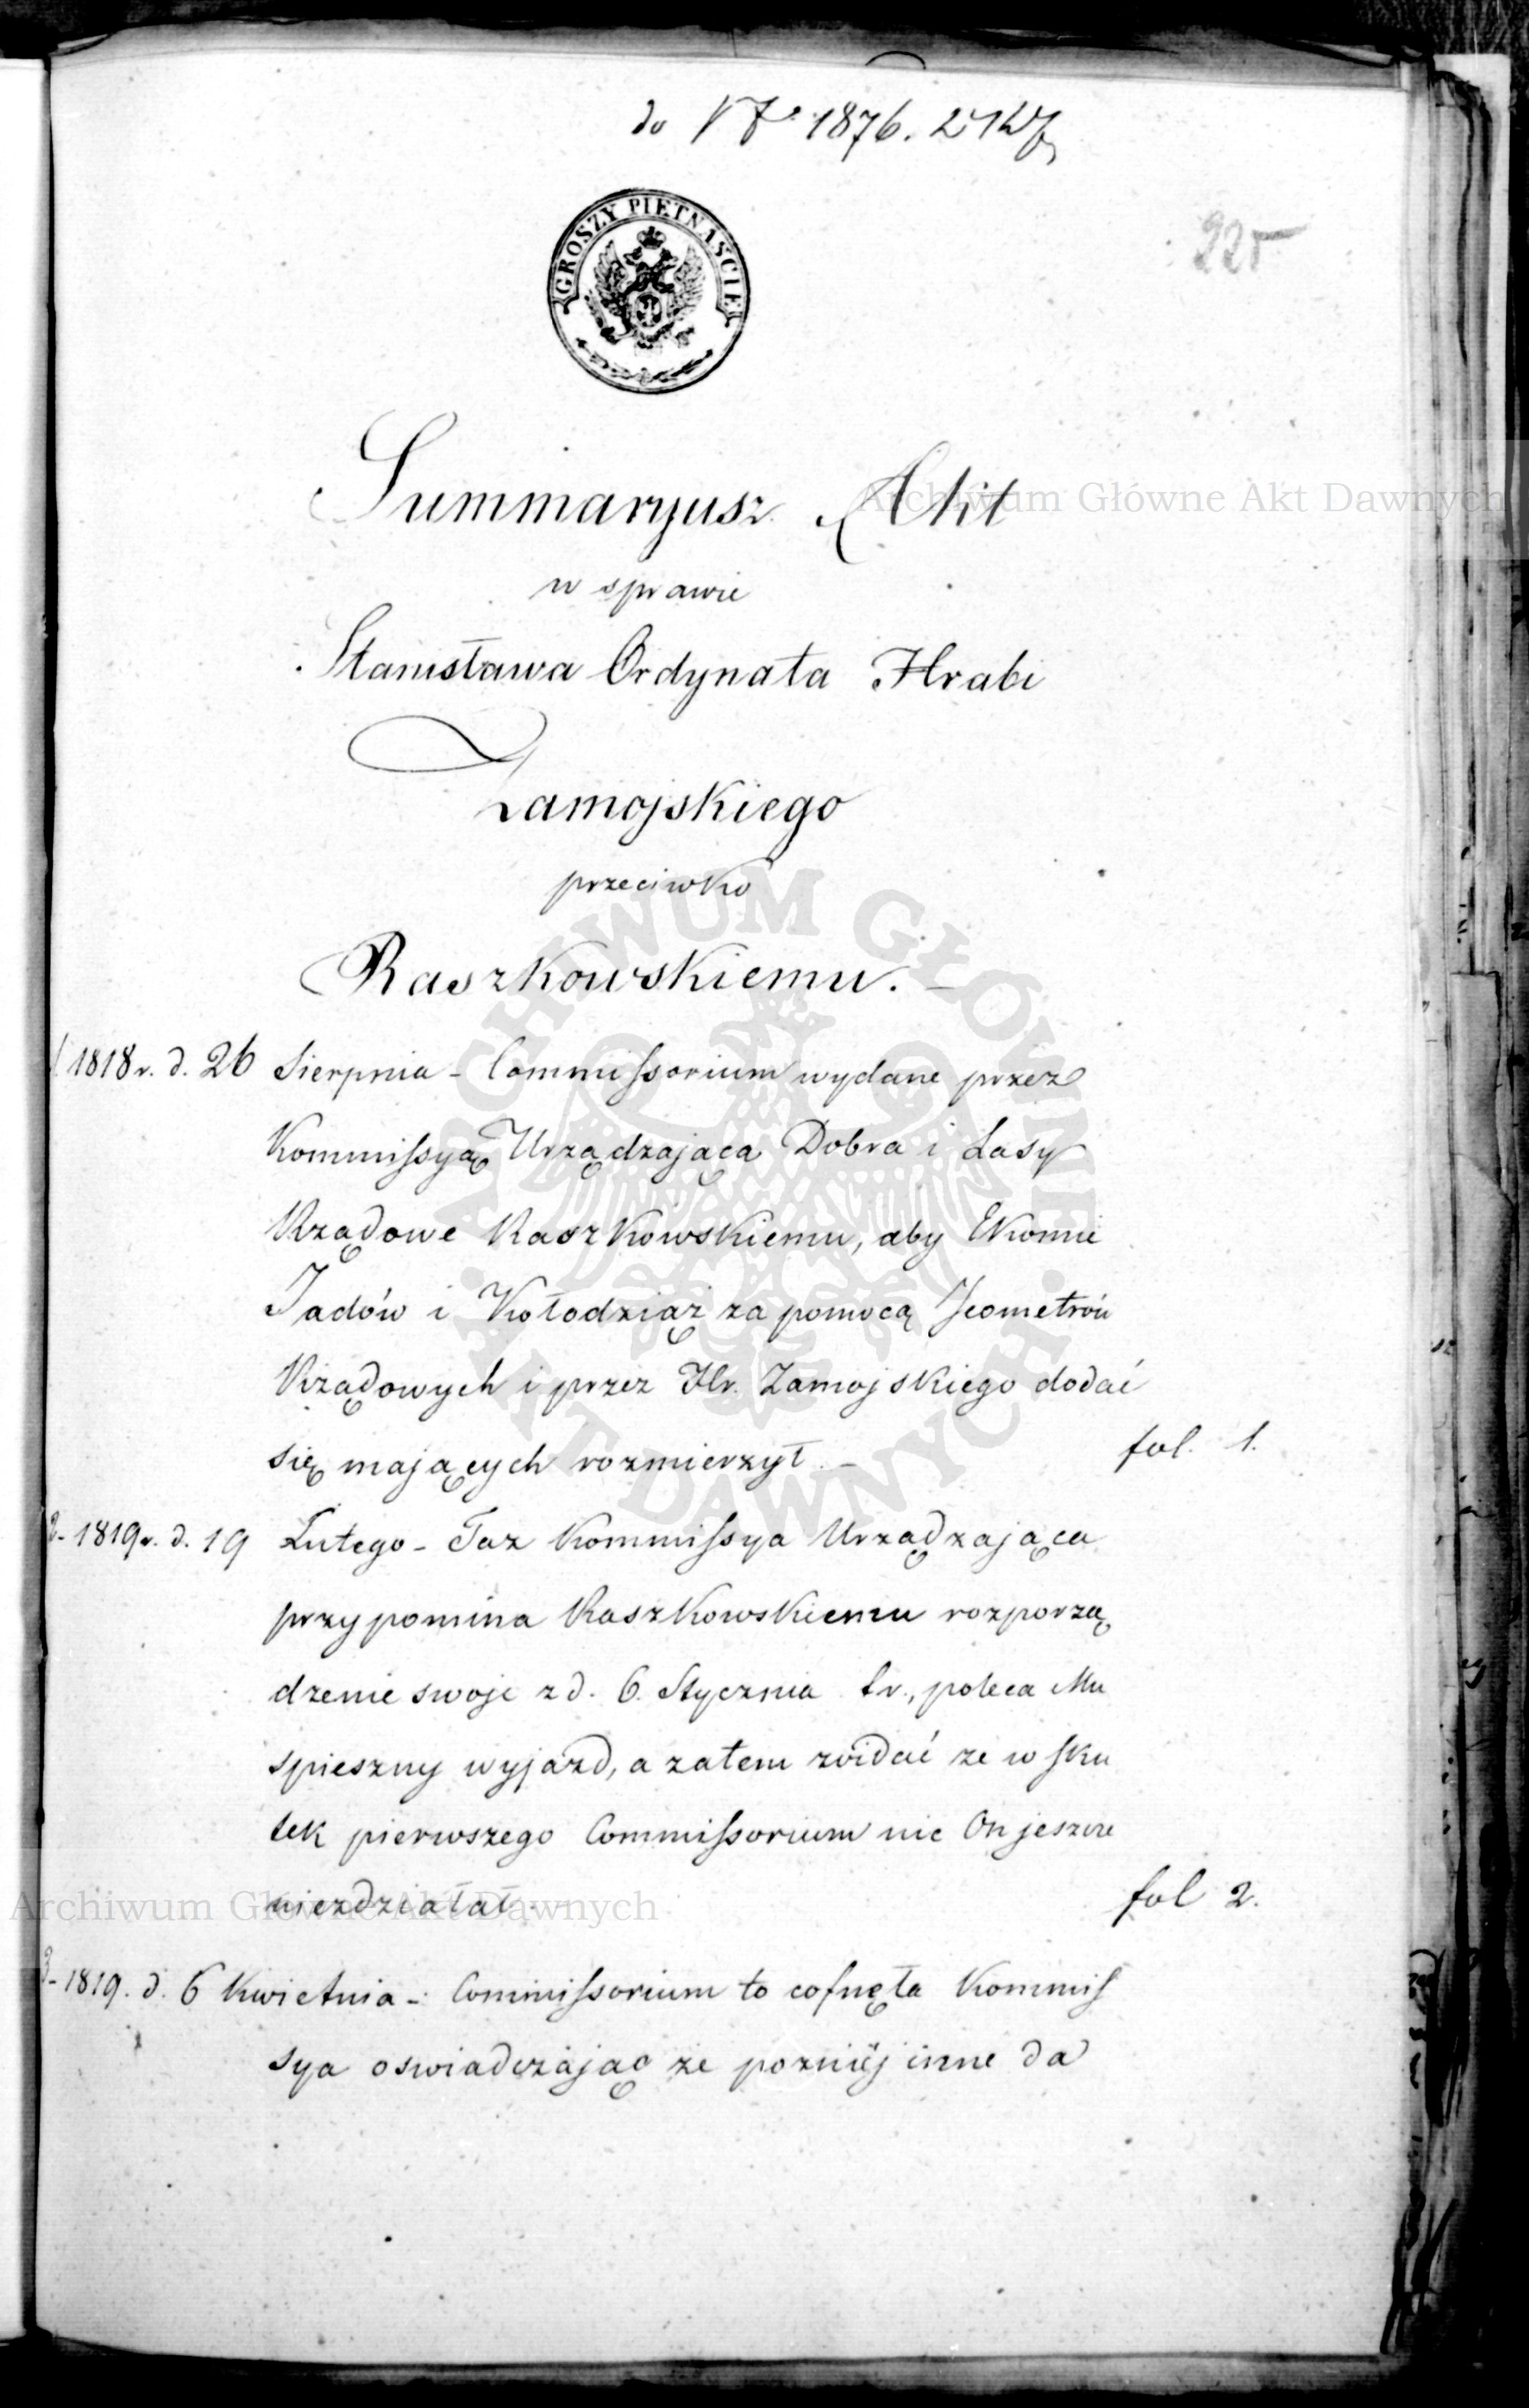 do 1876.
225
GROSZY PIĘTNAŚCIE
Summaryusz Akt
w sprawie
Stanisława Ordynata Hrabi
Zamojskiego
przeciwko
Raszkowskiemu. –
1 1818 r. d. 26 Sierpnia – Commissorium wydane przez
Kommissyą Urządzającą Dobra i Lasy
Rządowe Raszkowskiemu, aby Ekonomie
Jadów i Kołodziąż za pomocą Jeometrów
Rządowych i przez Hr. Zamojskiego dodać
się mających rozmierzył. – fol. 1.
2 – 1819 r. d. 19 Lutego – Taż Kommissya Urządzająca
przypomina Raszkowskiemu rozporzą
dzenie swoje z d. 6. Stycznia t. r., poleca Mu
spieszny wyjazd, a zatem widać że w sku
tek pierwszego Commissorium nic On jeszcze
niezdziałał. fol 2.
3 – 1819. d. 6 Kwietnia – Commissorium to cofnęła Kommis
sya oswiadczając że pozniéj inne da
Archiwum Główne Akt Dawnych
Archiwum Główne Akt Dawnych
ARCHIWUM GŁÓWNE AKT DAWNYCH